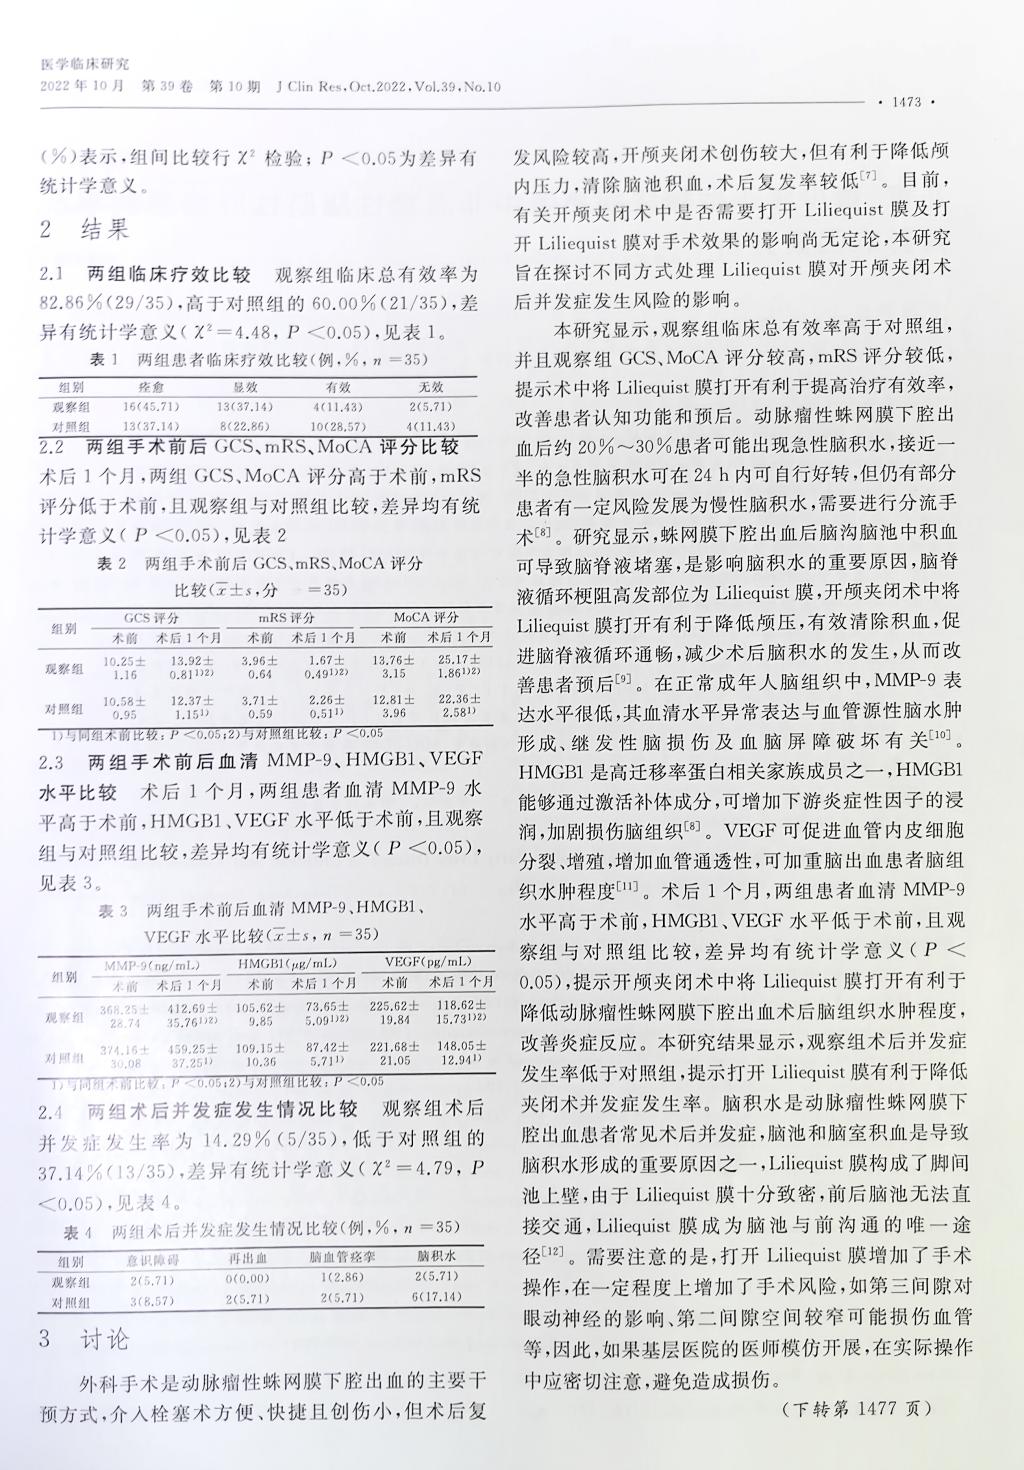 医学临床研究
2022年10月 第39卷 第10期 J Clin Res,Oct.2022,Vol.39,No.10
· 1473 ·
(%)表示,组间比较行 χ² 检验; P <0.05为差异有
统计学意义。
2 结果
2.1 两组临床疗效比较 观察组临床总有效率为
82.86%(29/35),高于对照组的 60.00%(21/35),差
异有统计学意义( χ²=4.48, P <0.05),见表 1。
表 1 两组患者临床疗效比较(例,%, n =35)
组别 痊愈 显效 有效 无效
观察组 16(45.71) 13(37.14) 4(11.43) 2(5.71)
对照组 13(37.14) 8(22.86) 10(28.57) 4(11.43)
2.2 两组手术前后 GCS、mRS、MoCA 评分比较
术后 1 个月,两组 GCS、MoCA 评分高于术前,mRS
评分低于术前,且观察组与对照组比较,差异均有统
计学意义( P <0.05),见表 2
表 2 两组手术前后 GCS、mRS、MoCA 评分
比较(x̄±s,分 =35)
组别 GCS 评分 mRS 评分 MoCA 评分
术前 术后 1 个月 术前 术后 1 个月 术前 术后 1 个月
观察组 10.25± 13.92± 3.96± 1.67± 13.76± 25.17±
1.16 0.81¹⁾²⁾ 0.64 0.49¹⁾²⁾ 3.15 1.86¹⁾²⁾
对照组 10.58± 12.37± 3.71± 2.26± 12.81± 22.36±
0.95 1.15¹⁾ 0.59 0.51¹⁾ 3.96 2.58¹⁾
1)与同组术前比较: P <0.05;2)与对照组比较: P <0.05
2.3 两组手术前后血清 MMP-9、HMGB1、VEGF
水平比较 术后 1 个月,两组患者血清 MMP-9 水
平高于术前,HMGB1、VEGF 水平低于术前,且观察
组与对照组比较,差异均有统计学意义( P <0.05),
见表 3。
表 3 两组手术前后血清 MMP-9、HMGB1、
VEGF 水平比较(x̄±s, n =35)
组别 MMP-9(ng/mL) HMGB1(μg/mL) VEGF(pg/mL)
术前 术后 1 个月 术前 术后 1 个月 术前 术后 1 个月
观察组 368.25± 412.69± 105.62± 73.65± 225.62± 118.62±
28.74 35.76¹⁾²⁾ 9.85 5.09¹⁾²⁾ 19.84 15.73¹⁾²⁾
对照组 374.16± 459.25± 109.15± 87.42± 221.68± 148.05±
30.08 37.25¹⁾ 10.36 5.71¹⁾ 21.05 12.94¹⁾
1)与同组术前比较: P <0.05;2)与对照组比较: P <0.05
2.4 两组术后并发症发生情况比较 观察组术后
并发症发生率为 14.29%(5/35),低于对照组的
37.14%(13/35),差异有统计学意义( χ²=4.79, P
<0.05),见表 4。
表 4 两组术后并发症发生情况比较(例,%, n =35)
组别 意识障碍 再出血 脑血管痉挛 脑积水
观察组 2(5.71) 0(0.00) 1(2.86) 2(5.71)
对照组 3(8.57) 2(5.71) 2(5.71) 6(17.14)
3 讨论
外科手术是动脉瘤性蛛网膜下腔出血的主要干
预方式,介入栓塞术方便、快捷且创伤小,但术后复
发风险较高,开颅夹闭术创伤较大,但有利于降低颅
内压力,清除脑池积血,术后复发率较低[7]。目前,
有关开颅夹闭术中是否需要打开 Liliequist 膜及打
开 Liliequist 膜对手术效果的影响尚无定论,本研究
旨在探讨不同方式处理 Liliequist 膜对开颅夹闭术
后并发症发生风险的影响。
本研究显示,观察组临床总有效率高于对照组,
并且观察组 GCS、MoCA 评分较高,mRS 评分较低,
提示术中将 Liliequist 膜打开有利于提高治疗有效率,
改善患者认知功能和预后。动脉瘤性蛛网膜下腔出
血后约 20%~30%患者可能出现急性脑积水,接近一
半的急性脑积水可在 24 h 内可自行好转,但仍有部分
患者有一定风险发展为慢性脑积水,需要进行分流手
术[8]。研究显示,蛛网膜下腔出血后脑沟脑池中积血
可导致脑脊液堵塞,是影响脑积水的重要原因,脑脊
液循环梗阻高发部位为 Liliequist 膜,开颅夹闭术中将
Liliequist 膜打开有利于降低颅压,有效清除积血,促
进脑脊液循环通畅,减少术后脑积水的发生,从而改
善患者预后[9]。在正常成年人脑组织中,MMP-9 表
达水平很低,其血清水平异常表达与血管源性脑水肿
形成、继发性脑损伤及血脑屏障破坏有关[10]。
HMGB1 是高迁移率蛋白相关家族成员之一,HMGB1
能够通过激活补体成分,可增加下游炎症性因子的浸
润,加剧损伤脑组织[8]。VEGF 可促进血管内皮细胞
分裂、增殖,增加血管通透性,可加重脑出血患者脑组
织水肿程度[11]。术后 1 个月,两组患者血清 MMP-9
水平高于术前,HMGB1、VEGF 水平低于术前,且观
察组与对照组比较,差异均有统计学意义( P <
0.05),提示开颅夹闭术中将 Liliequist 膜打开有利于
降低动脉瘤性蛛网膜下腔出血术后脑组织水肿程度,
改善炎症反应。本研究结果显示,观察组术后并发症
发生率低于对照组,提示打开 Liliequist 膜有利于降低
夹闭术并发症发生率。脑积水是动脉瘤性蛛网膜下
腔出血患者常见术后并发症,脑池和脑室积血是导致
脑积水形成的重要原因之一,Liliequist 膜构成了脚间
池上壁,由于 Liliequist 膜十分致密,前后脑池无法直
接交通,Liliequist 膜成为脑池与前沟通的唯一途
径[12]。需要注意的是,打开 Liliequist 膜增加了手术
操作,在一定程度上增加了手术风险,如第三间隙对
眼动神经的影响、第二间隙空间较窄可能损伤血管
等,因此,如果基层医院的医师模仿开展,在实际操作
中应密切注意,避免造成损伤。
(下转第 1477 页)